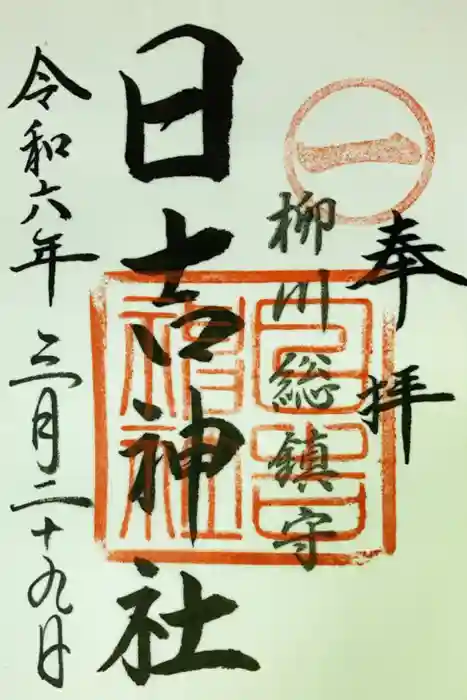 奉拝
一
柳川総鎮守
日吉神社
日吉神社
令和六年三月二十九日